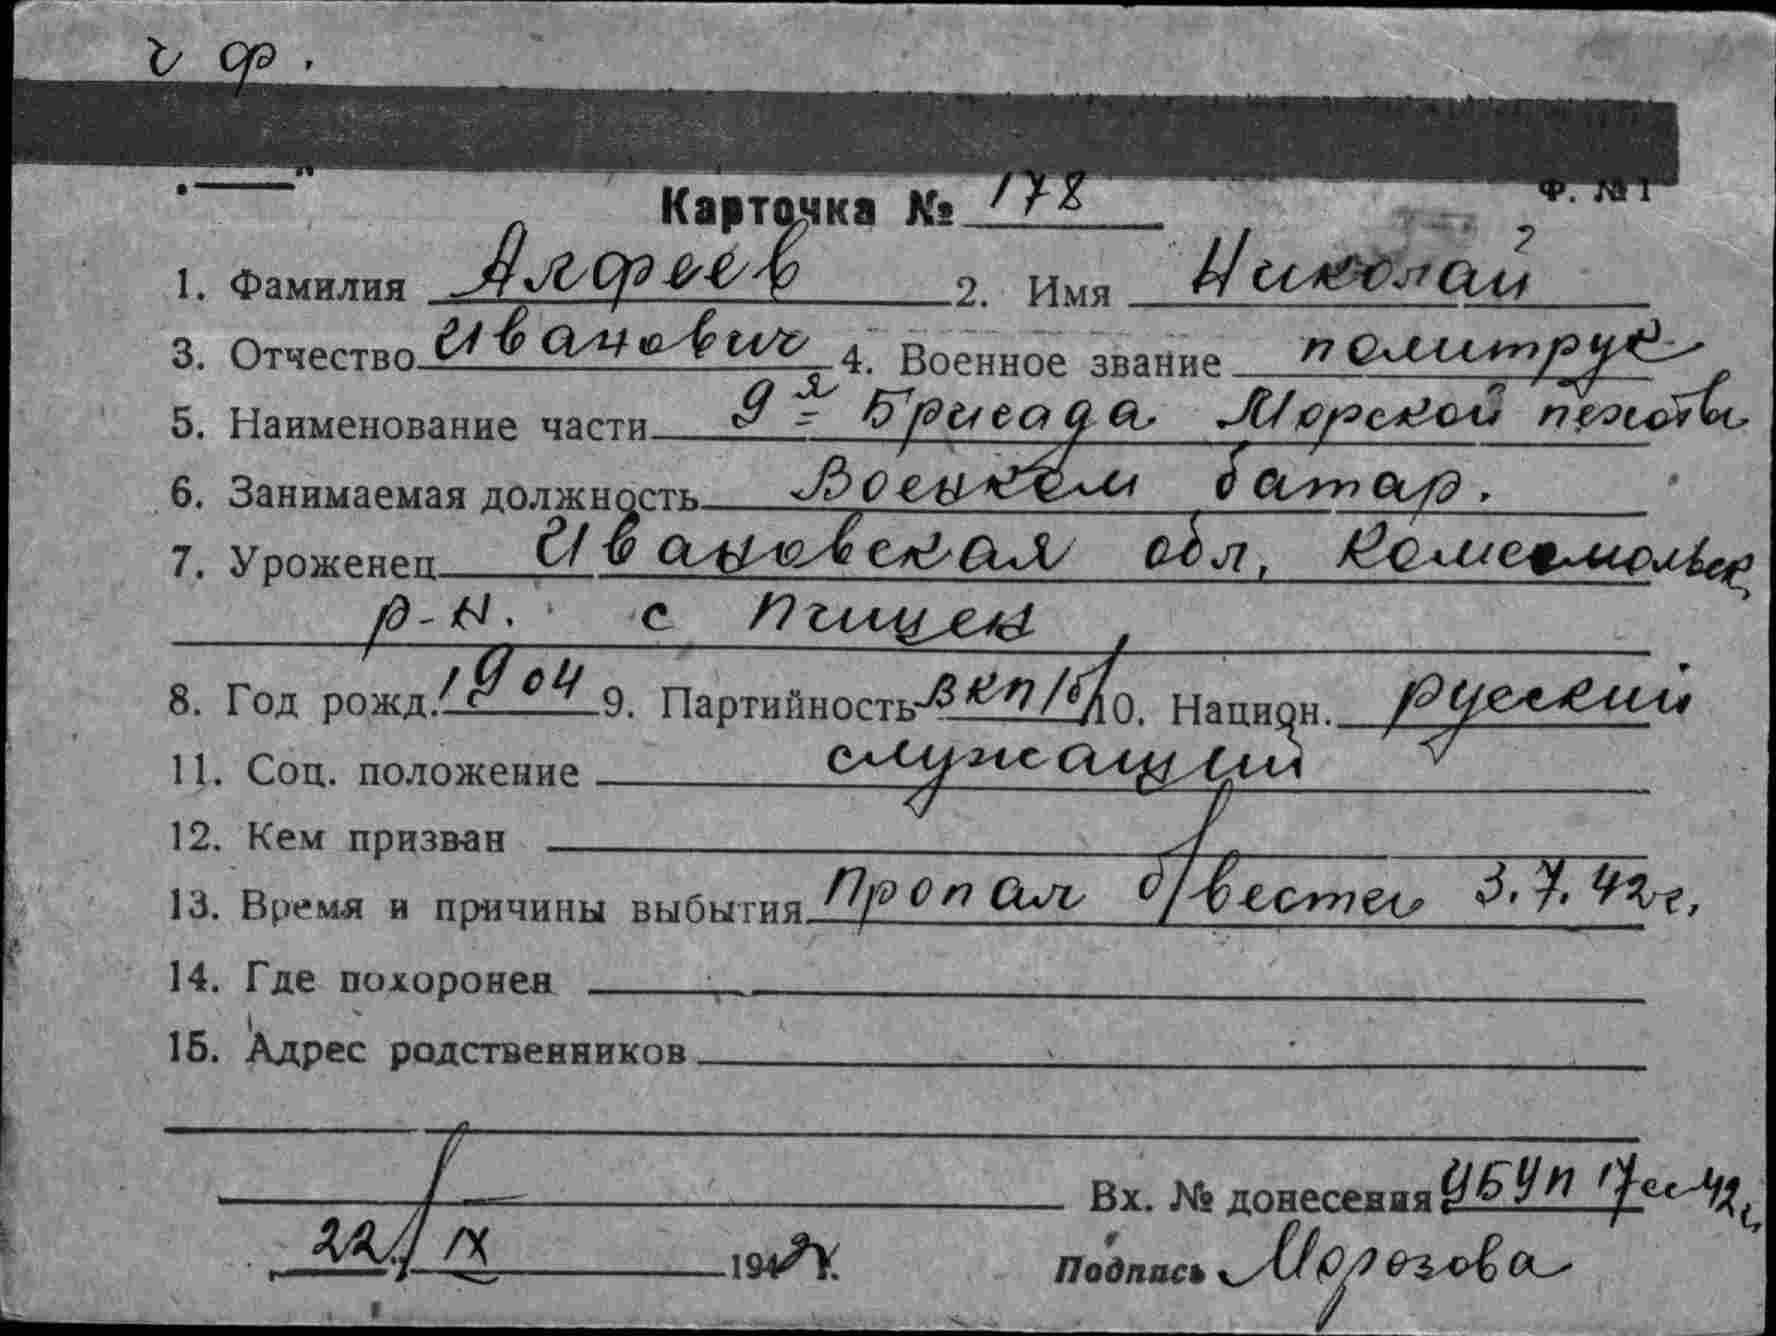 ч ф.
Ф. № 1
Карточка № 178
1. Фамилия Алфеев 2. Имя Николай
3. Отчество Иванович 4. Военное звание политрук
5. Наименование части 9я Бригада Морской пехоты
6. Занимаемая должность Военком батар.
7. Уроженец Ивановская обл. Комсомольск
р-н. с Птицен
8. Год рожд. 1904 9. Партийность ВКП/б/ 10. Национ. русский
11. Соц. положение служащий
12. Кем призван
13. Время и причины выбытия Пропал б/вести 3.7.42г.
14. Где похоронен
15. Адрес родственников
Вх. № донесения УБУП 17сс-42г.
22/IX 1942г.
Подпись Морозова